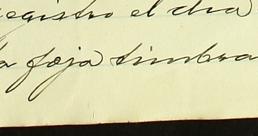 registro el dia
a foja timbra